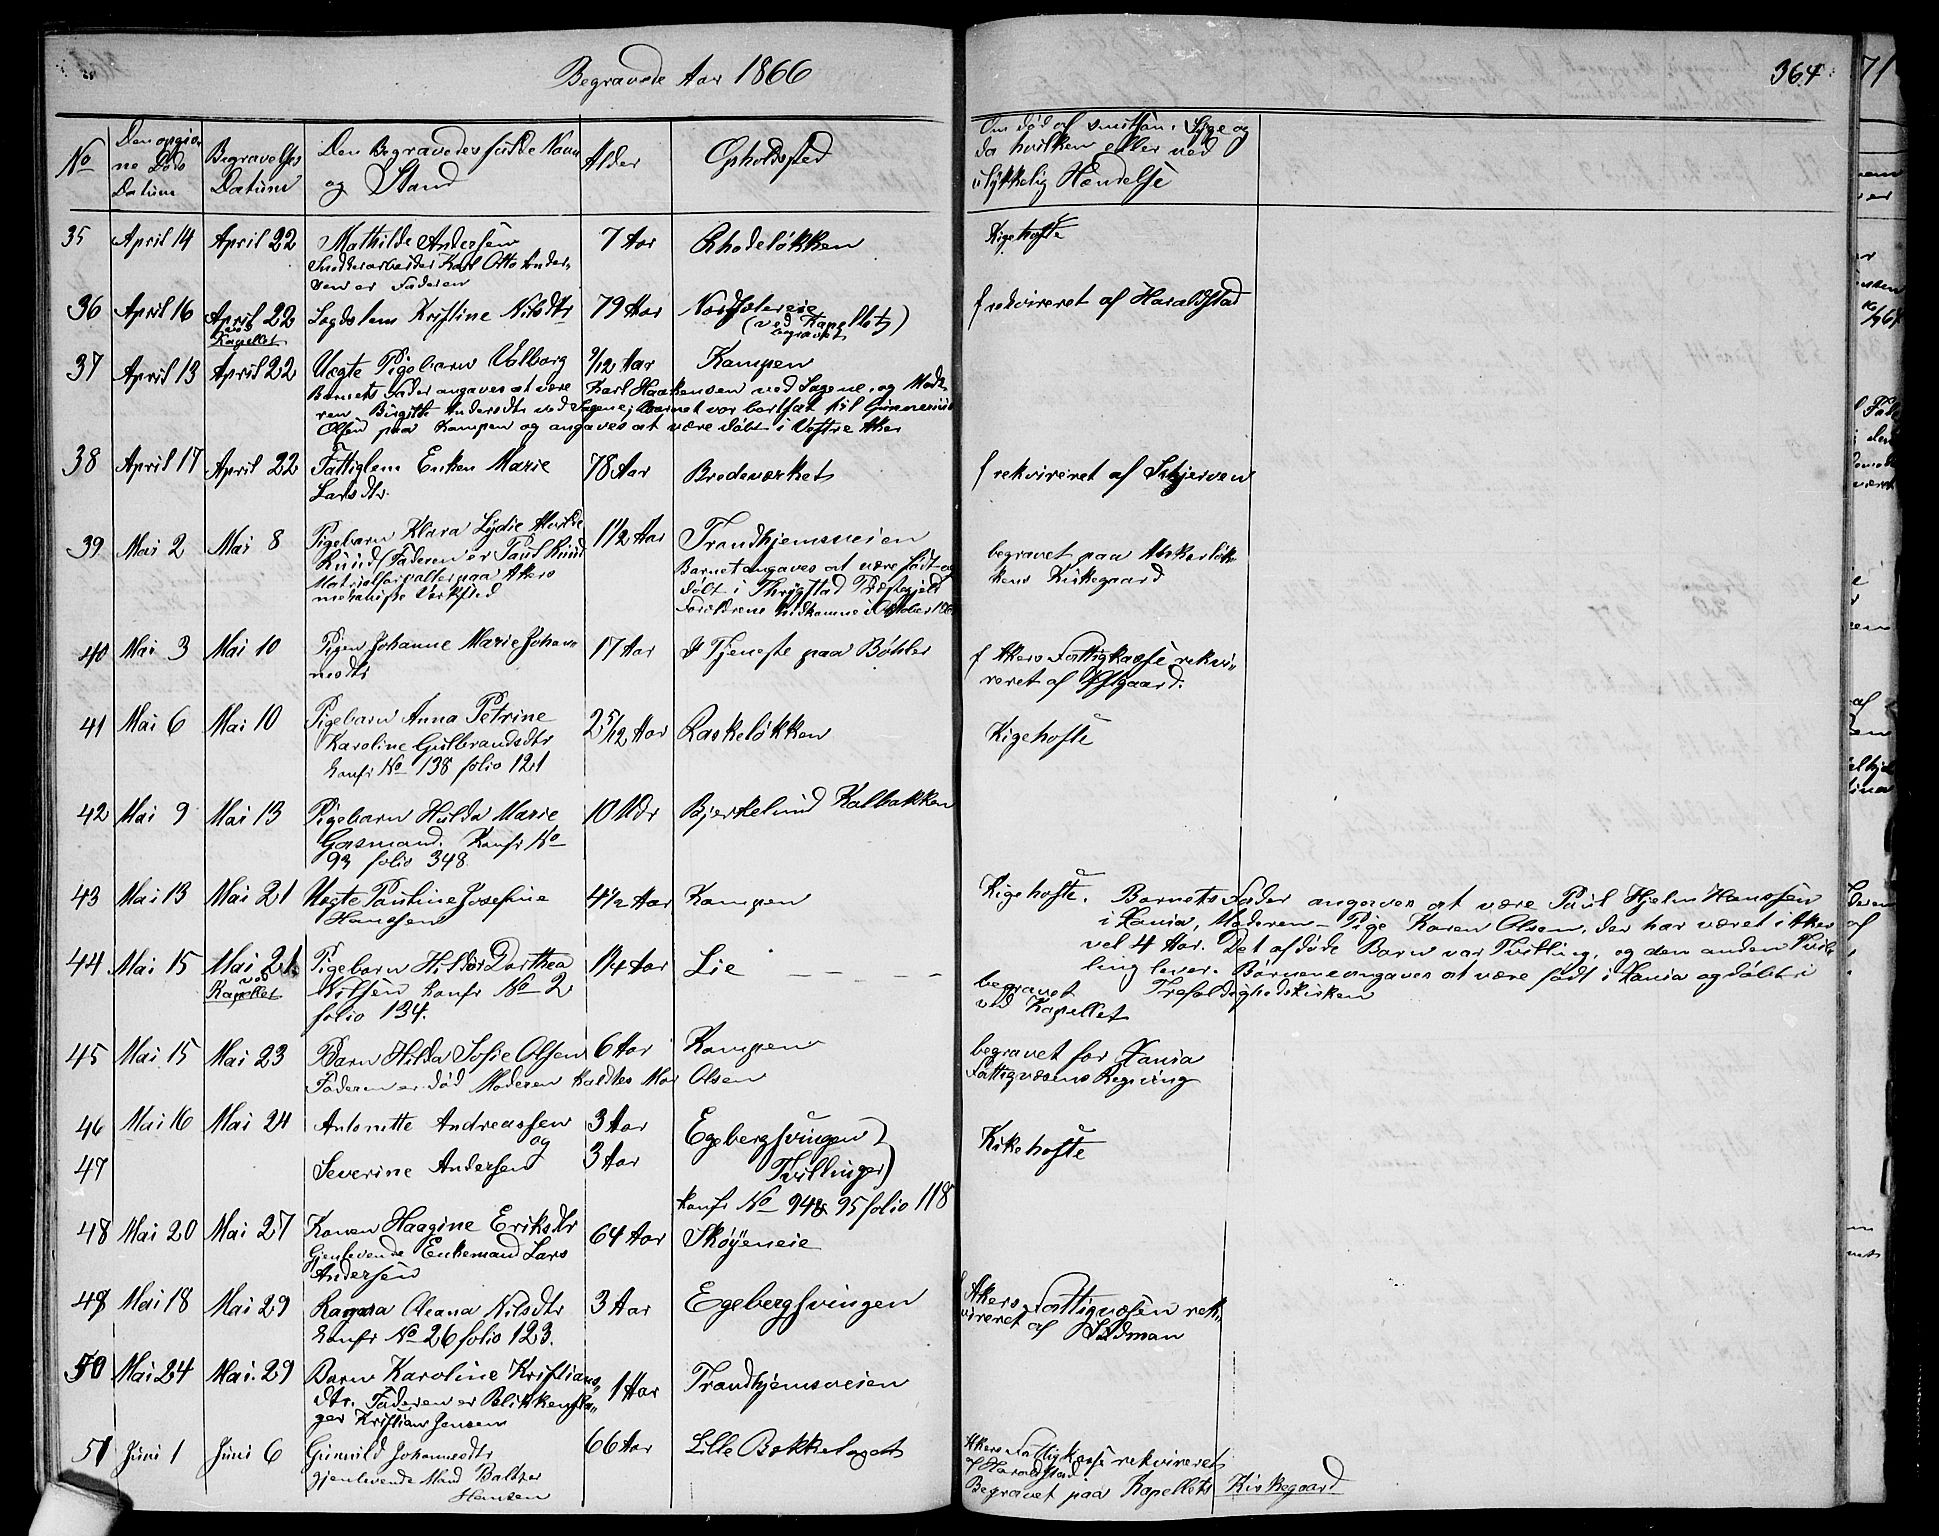 Begravede Aar 1866
364
71
No
Den opgiv-
ne Døds
Datum
Begravelses
Datum
Den Begravedes fulde Navn
og Stand
Alder
Opholdssted
Om død af smitsom Syge og
da hvilken eller ved
ulykkelig Hændelse
35 April 14 April 22 Mathilde Andersen 7 Aar Rhodeløkken Kigehoste
Snedkerarbeider Karl Otto Ander-
sen er Faderen
36 April 16 April 22 Logdslem Kristine Nilsdtr 79 Aar f rekvireret af Haraldstad
ved Kapellet
(ved Kapellet
begravet)
37 April 13 April 22 Uegte Pigebarn Valborg 9/12 Aar Kampen
Barnets Fader angaves at være Karl Haakensen ved Sagene, og Mode-
ren Birgitte Andersdtr ved Sagene; Barnet var bortsat til Gunnerius
Olsen paa Kampen og angaves at være døbt i Vestre Aker
38 April 17 April 22 Fattiglem Enken Marie 78 Aar Bredeverket f rekvireret af Skjerven
Larsdtr.
39 Mai 2 Mai 8 Pigebarn Klara Lydie Alvilde 1 1/2 Aar Trondhjemsveien begravet paa Ankerløk-
Ruud (Faderen er Paul Ruud Barnet angaves at være født og kens Kirkegaard
Materialforvalter paa Akers døbt i Thrygstad Præstegjeld
mekaniske Verksted Forældrene hidkomne i Oktober
40 Mai 3 Mai 10 Pigen Johanne Marie Johan- 17 Aar I Tjeneste paa Bøhler f Akers Fattigkasse rekvi-
nesdtr reret af Østgaard.
41 Mai 6 Mai 10 Pigebarn Anna Petrine 2 5/12 Aar Laskeløkken Kigehoste
Karoline Gulbrandsdtr
konfr No 138 folio 121
42 Mai 9 Mai 13 Pigebarn Hulda Marie 10 Mdr Bjerkelund Kalbakken
Gasmand. Konfr No
93 folio 348
43 Mai 13 Mai 21 Uegte Pauline Josefine 4 1/2 Aar Kampen Kigehoste. Barnets Fader angives at være Paul Hjelm Hanssen
Hanssen i Xania, Moderen - Pige Karen Olsen, der har været i Aker
vel 4 Aar. Det afdøde Barn var Tvilling, og den anden Tvil-
ling lever. Børnene angaves at være født i Xania og døbt i
Trefoldighedskirken
44 Mai 15 Mai 21 Pigebarn Hilda Dorthea 1 1/4 Aar Lie begravet
ved Kapellet Nilsen konfr No 2 ved Kapellet
folio 134.
45 Mai 15 Mai 23 Barn Hilda Sofie Olsen 6 Aar Kampen begravet for Xania
Faderen er død Moderen kaldtes Mar Olsen Fattigvæsens Regning
46 Mai 16 Mai 24 Antonette Andreassen 3 Aar Egebergsvingen
og Kikehoste
47 Severine Andersen 3 Aar Tvillinger)
konfr No 94 & 95 folio 118
48 Mai 20 Mai 27 Konen Haagine Eriksdtr 64 Aar Skøyeneie
Gjenlevende Enkemand Lars
Andersen
49 Mai 18 Mai 29 Ragna Oleana Nilsdtr 3 Aar Egebergsvingen f Akers Fattigvæsen rek-
konfr No 26 folio 123. vireret af
50 Mai 24 Mai 29 Barn Karoline Kristians- 1 Aar Trondhjemsveien
dtr. Faderen er Blikkensla-
ger Kristian Jensen
51 Juni 1 Juni 6 Gunnild Johannesdtr 66 Aar Lille Bekkelaget Akers Fattigkasse rekvireret
gjenlevende Mand Baltzer af Haraldstad
Hansen Begravet paa Kapellets Kirkegaard